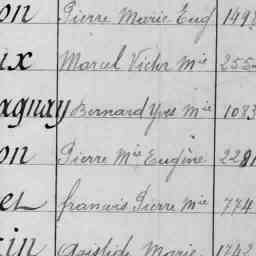 on Pierre Marie Eug 149
ux Marcel Victor Mie 255
aguay Bernard Yves Mie 1083
on Pierre Mie Eugène 2281
et francois Pierre Mie 774
in Aristide Marie 1742